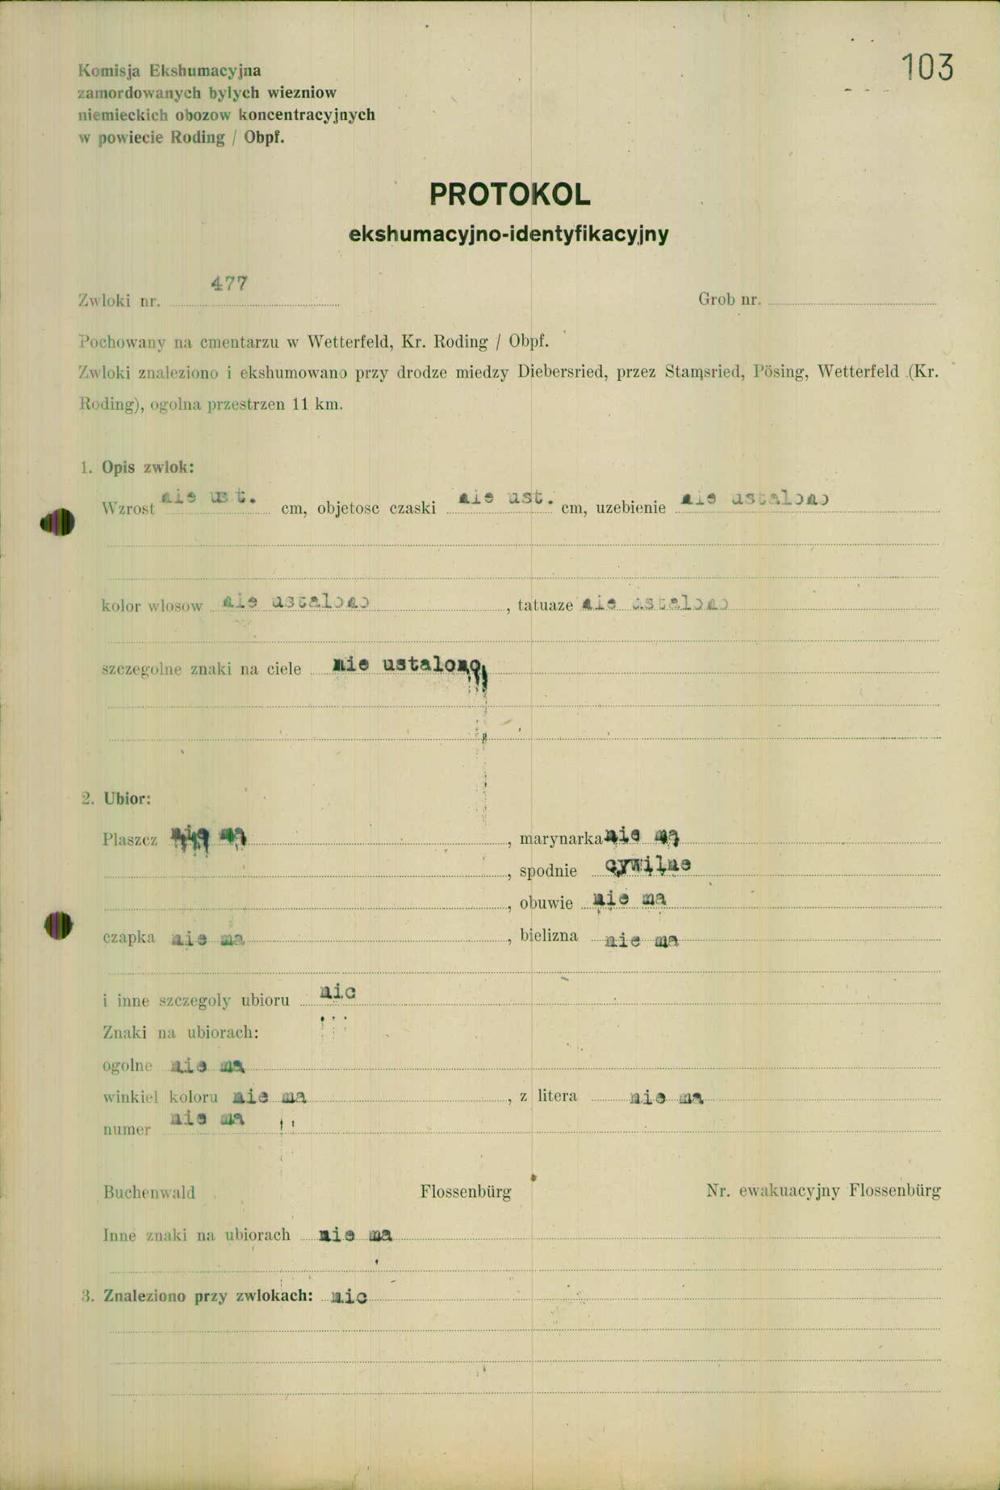 103
Komisja Ekshumacyjna
zamordowanych bylych wiezniow
niemieckich obozow koncentracyjnych
w powiecie Roding / Obpf.
PROTOKOL
ekshumacyjno-identyfikacyjny
Zwloki nr. 477 Grob nr.
Pochowany na cmentarzu w Wetterfeld, Kr. Roding / Obpf.
Zwloki znaleziono i ekshumowano przy drodze miedzy Diebersried, przez Stamsried, Pösing, Wetterfeld (Kr.
Roding), ogolna przestrzen 11 km.
1. Opis zwlok:
Wzrost nie ust. cm, objetosc czaski nie ust. cm, uzebienie nie ustalono
kolor wlosow nie ustalono, tatuaze nie ustalono
szczegolne znaki na ciele nie ustalono
2. Ubior:
Plaszcz nie ma, marynarka nie ma
, spodnie cywilne
, obuwie nie ma
czapka nie ma, bielizna nie ma
i inne szczegoly ubioru nic
Znaki na ubiorach:
ogolne nie ma
winkiel koloru nie ma, z litera nie ma
numer nie ma
Buchenwald Flossenbürg Nr. ewakuacyjny Flossenbürg
Inne znaki na ubiorach nie ma
3. Znaleziono przy zwlokach: nic